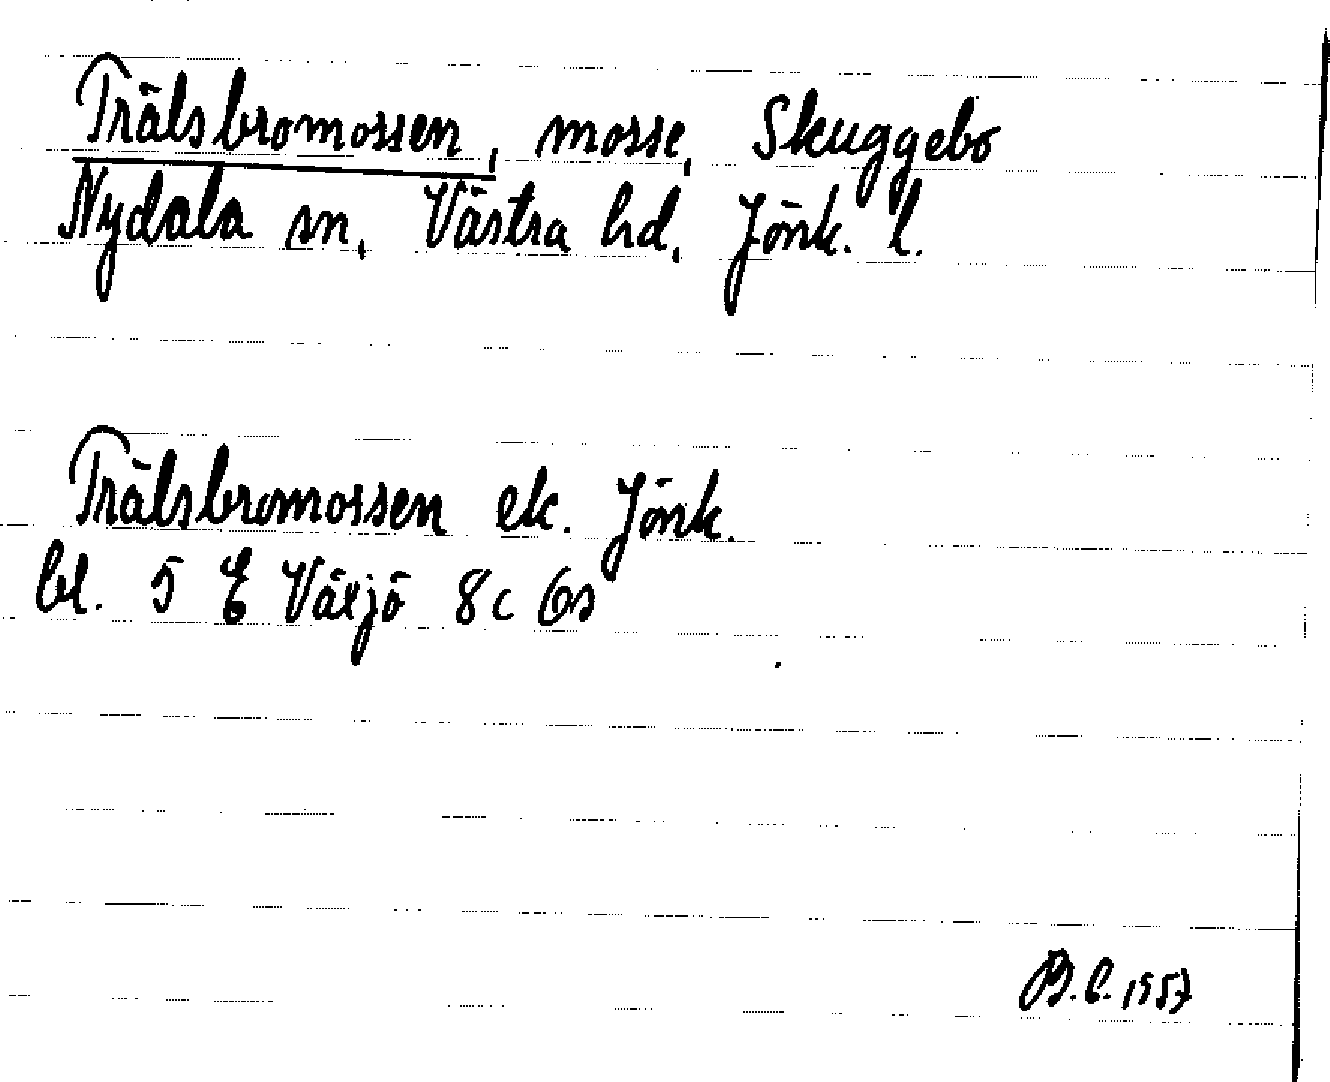 Trälsbromossen, mosse, Skuggebo
Nydala sn, Västra hd, Jönk. l.
Trälsbromossen ek. Jönk.
bl. 5 E Växjö 8c 6s
B.E. 1957